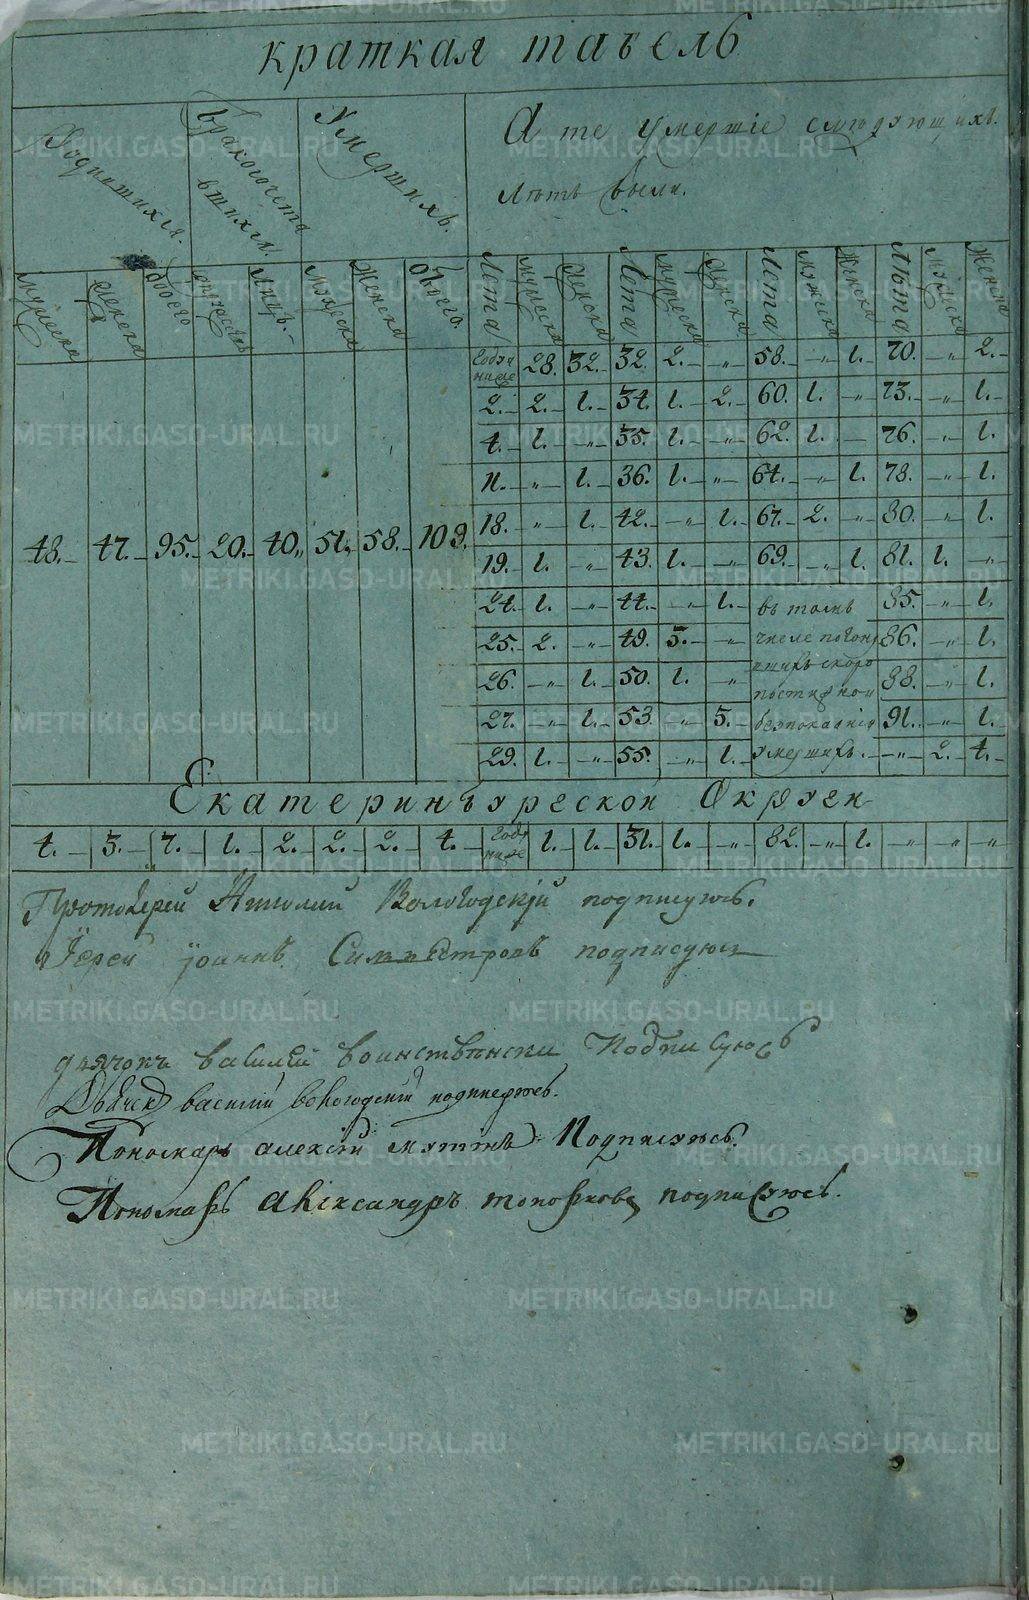 краткая табель
Родившихся.
Бракосочета
вшихся.
Умершихъ.
А те умершіе следующихъ.
летъ были.
мужеска
женска
обоего
Лицъ.
мужеска
женска
обоего.
Лета
мужеска
женска
Лета
мужеска
женска
Лета
мужеска
женска
Лета
мужеска
женска
28. 32. 32. 2. „ 58. „ 1. 70. „ 2.
2. 2. 1. 34. 1. 2. 60. 1. „ 73. „ 1.
4. 1. „ 35. 1. „ 62. 1. — 76. „ 1.
11. „ 1. 36. 1. „ 64. „ 1. 78. „ 1.
18. „ 1. 42. „ 1. 67. 2. „ 80. „ 1.
48. 47. 95. 20. 40. 51. 58. 109.
19. 1. „ 43. 1. „ 69. „ 1. 81. 1. „
24. 1. „ 44. „ 1. въ томъ 85. „ 1.
25. 2. „ 49. 3. „ числе 86. „ 1.
26. „ 1. 50. 1. „ скоро 88. „ 1.
27. „ 1. 53. „ 3. безпокаянія 91. „ 1.
29. 1. „ 55. „ 1. умершихъ. „ 2. 4.
Екатеринбургской Округи
4. 3. 7. 1. 2. 2. 2. 4. 1. 1. 31. 1. „ 82. „ 1. „ „ „
Протоіерей Вологодскій подписуюсь.
Іерей Іоаннъ подписуюсь
дьячокъ василей воинственски Подписуюсь
Дьячек василий вологодский
Пономарь алексій мутинъ Подписуюсь.
Пономарь александръ топорковъ подписуюсь.
METRIKI.GASO-URAL.RU